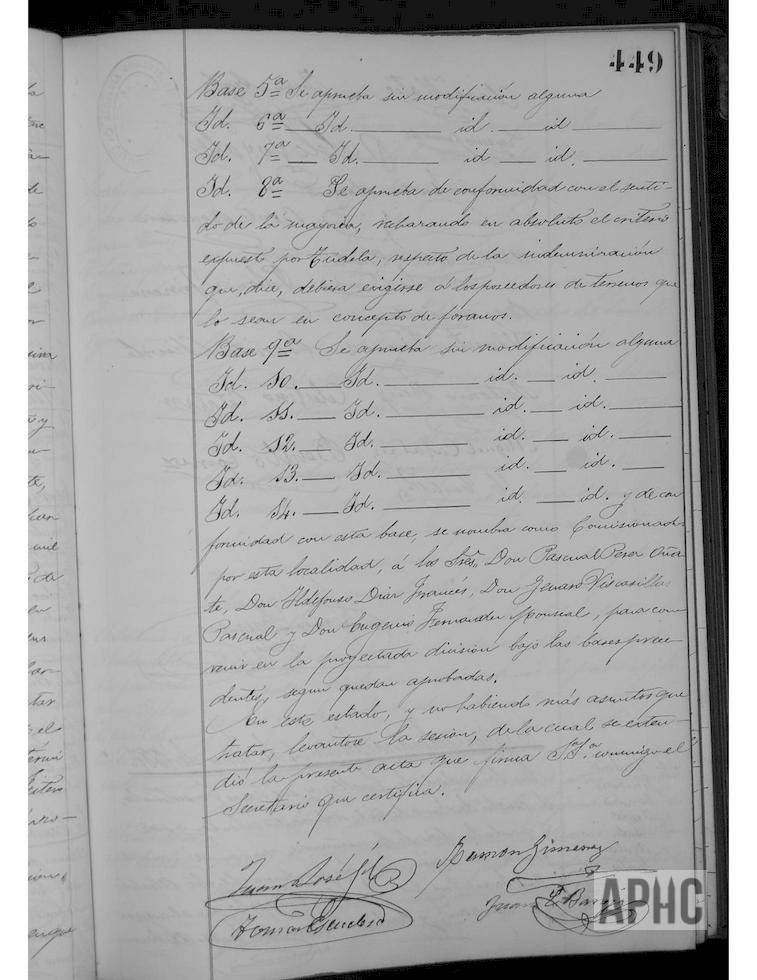 449
Base 5ª Se aprueba sin modificación alguna
Id. 6ª Id. id. id
Id. 7ª Id. id id.
Id. 8ª Se aprueba de conformidad con el senti-
do de la mayoria, recharando en absoluto el criterio
expuesto, por Tudela, respecto de la indemniración
que, dice, debiera exigirse á los poseedores de terrenos que
lo sean en concepto de foranos.
Base 9ª Se aprueba sin modificación alguna
Id. 10. Id. id. id.
Id. 11. Id. id. id.
Id. 12. Id. id. id.
Id. 13. Id. id. id.
Id. 14. Id. id. id. y de con
formidad con esta base, se nombra como Comisionad
por esta localidad, á los Sres. Don Pascual Perer Oña
te, Don Ildefonso Diar Francés, Don Genaro Viscasillas
Pascual y Don Eugenio Fernander Monreal, para con
venir en la proyectada división bajo las bases prece
dentes, segun quedan aprobadas.
En este estado, y no habiendo más asuntos que
tratar, levantose la sesión, de la cual se exten
dió la presente acta que firma S.Sª. conmigo el
Secretario que certifica.
Ramon Gimenez
Juan José
Juan
APHC